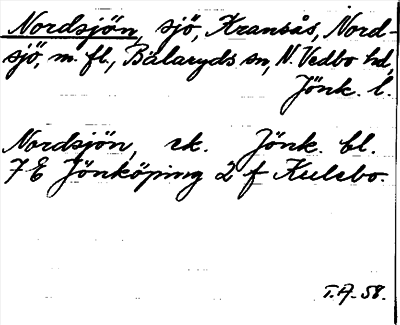 Nordsjön, sjö, Kransås, Nord-
sjö, m. fl., Bälaryds sn, N. Vedbo hd,
Jönk. l.
Nordsjön, rk. Jönk. bl.
7 E Jönköping 2 f Kulebo.
T.A. 58.